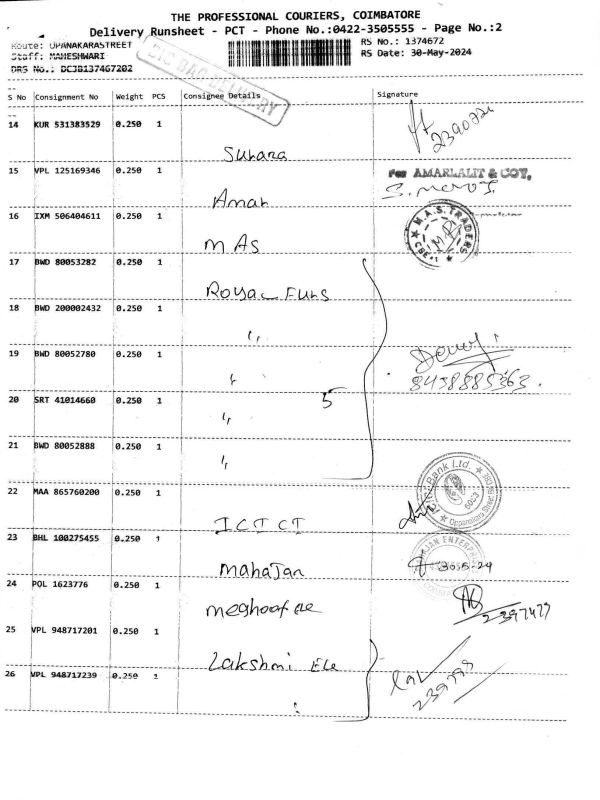 THE PROFESSIONAL COURIERS, COIMBATORE
Delivery Runsheet - PCT - Phone No.:0422-3505555 - Page No.:2
Route: UPANAKARASTREET
RS No.: 1374672
Staff: MAHESHWARI
RS Date: 30-May-2024
DRS No.: DCJB1374672O2
BIG BAG DELIVERY
S No Consignment No Weight PCS Consignee Details Signature
14 KUR 531383529 0.250 1
Suhana
15 VPL 125169346 0.250 1
For AMARLALIT & COY.
Amar
16 IXM 506404611 0.250 1
M.A.S. TRADERS
CBE-1
MAS
17 BWD 80053282 0.250 1
Royal Furs
18 BWD 200002432 0.250 1
"
19 BWD 80052780 0.250 1
8438885363.
"
20 SRT 41014660 0.250 1
5
"
21 BWD 80052888 0.250 1
"
22 MAA 865760200 0.250 1
Bank Ltd.
ICICI
23 BHL 100275455 0.250 1
Mahajan
24 POL 1623776 0.250 1
2397477
25 VPL 948717201 0.250 1
Lakshmi Ele
26 VPL 948717239 0.250 1
"